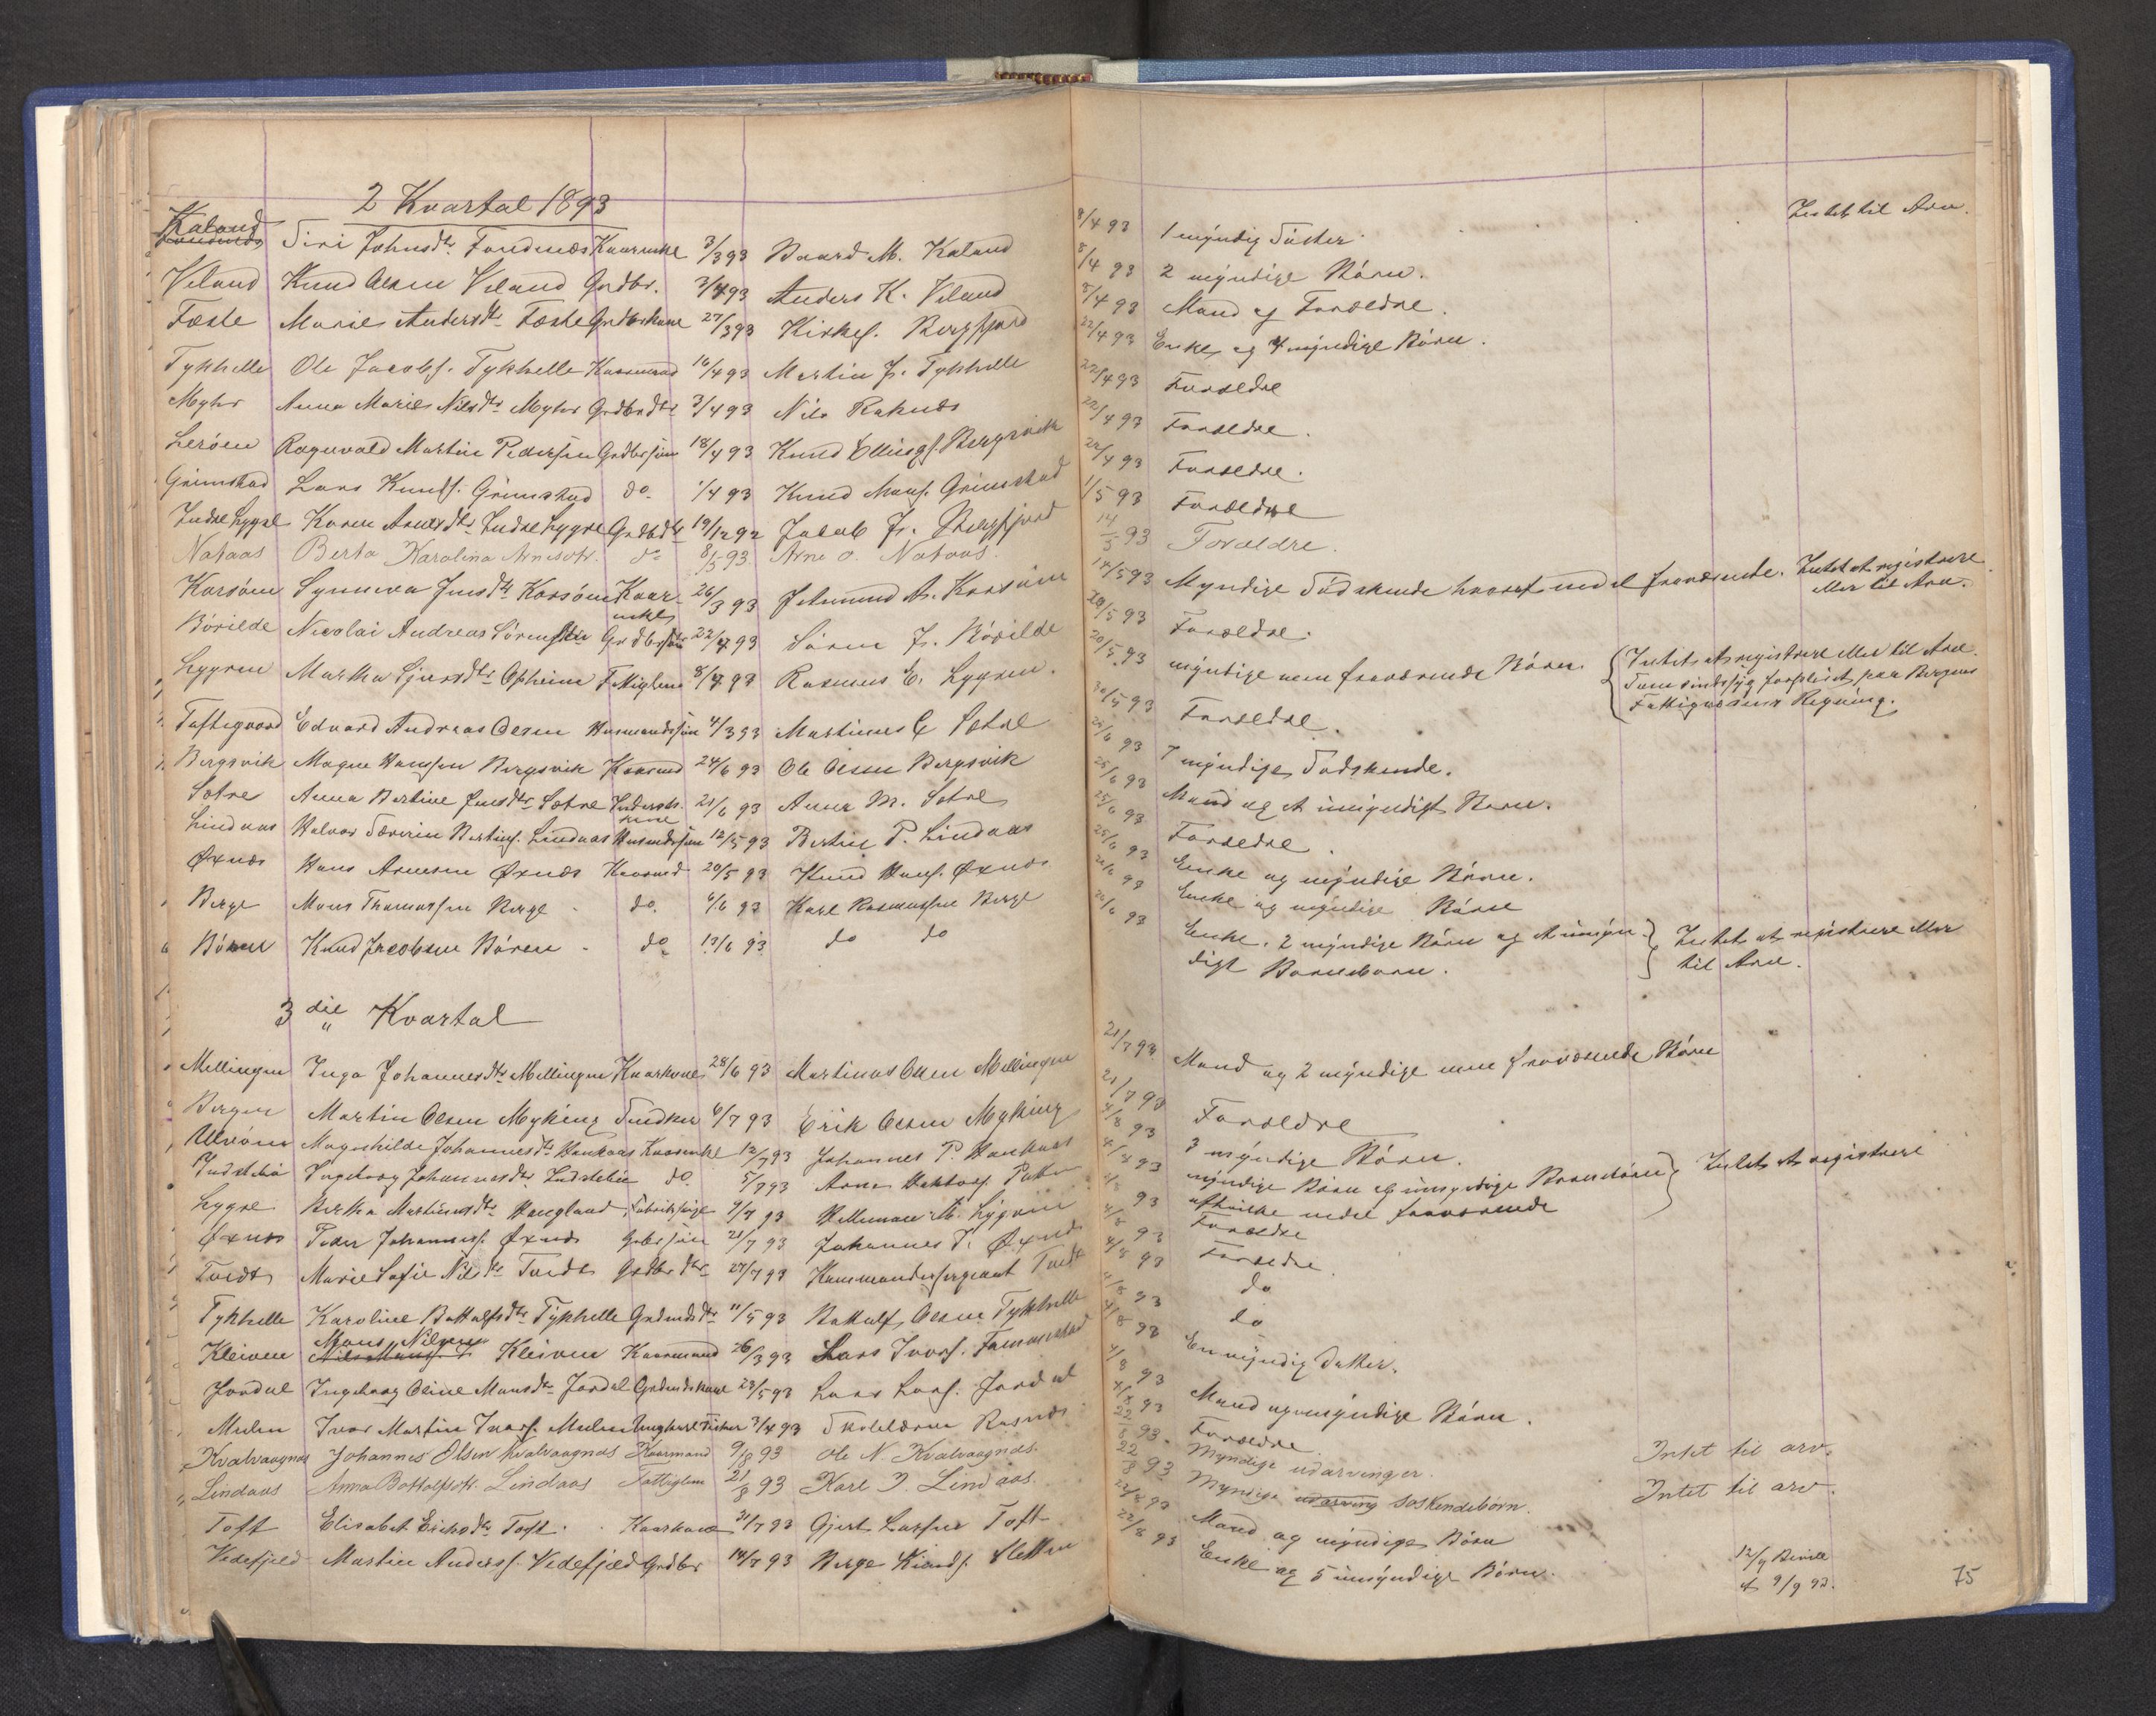 2 Kvartal 1893
Kaland
Fondnæs Siri Johnsdtr. Fondnæs Kaarenke 3/3 93 Baard M. Kaland 8/4 93 1 myndig Søster. Intet til Arv.
Veland Knud Olsen Veland Grdbr. 3/4 93 Anders K. Veland 8/4 93 2 myndige Børn.
Fæste Marie Andersdtr. Fæste Grdbrkone 27/3 93 Kirkes. Bergfjord 8/4 93 Mand og Forældre.
Tykhelle Ole Jacobs. Tykhelle Kaarmand 16/4 93 Martin J. Tykhelle 22/4 93 Enke og 4 myndige Børn.
Myhr Anna Marie Nilsdtr Myhr Grdbrdtr 3/4 93 Nils Raknes 22/4 93 Forældre
Lerøen Ragnvald Martin Pedersen Grdbrsøn 18/4 93 Knud Ellings. Bergsvik 22/4 93 Forældre.
Grimstad Lars Knuds. Grimstad do. 1/4 93 Knud Mons. Grimstad 22/4 93 Forældre.
Indre Lygre Karen Arnesdtr. Indre Lygre Grdbdtr 19/12 92 Jakob Fr. Bergfjord 1/5 93 Forældre
Nataas Berta Karolina Arnesdtr. do 8/5 93 Arne O. Nataas. 14/5 93 Forældre.
Korsøen Synneva Jensdtr. Korsøen Kaar- 26/3 93 Jetmund A. Korsøen 14/5 93 Myndige Sødskende hvoraf en del fraværende. Intet at registrere
enke eller til Arv.
Børilde Nicolai Andreas Sørensen Grdbrsøn 22/4 93 Søren J. Børilde 20/5 93 Forældre.
Lygren Martha Sjursdtr. Opheim Fattiglem 8/4 93 Rasmus E. Lygren. 20/5 93 myndige men fraværende Børn. Intet at registrere eller til Arv.
Som sindssyg forpleiet paa Bergens
Fattigvæsens Regning.
Toftegaard Edvard Andreas Olsen Husmandssøn 4/3 93 Martinus E Sætre 30/5 93 Forældre.
Bergsvik Mogne Hanssen Bergsvik Kaarmd 24/6 93 Ole Olsen Bergsvik 25/6 93 7 myndige Sødskende.
Sætre Anna Bertine Jensdtr Sætre Inderste. 21/6 93 Anna M. Sætre 25/6 93 Mand og et umyndigt Barn.
kone
Lindaas Halvor Severin Bertins. Lindaas Husmdssøn 12/5 93 Bertin P. Lindaas 25/6 93 Forældre.
Øxnæs Hans Arnesen Øxnæs Kaarmd 20/5 93 Knud Hans. Øxnæs 25/6 93 Enke og myndige Børn.
Berge Mons Thomassen Berge do. 6/6 93 Karl Rasmussen Berge 26/6 93 Enke og myndige Børn
Børen Knud Jacobsen Børen do 13/6 93 do do 26/6 93 Enke, 2 myndige Børn og et umyn- Intet at registrere eller
digt Barnebarn. til Arv.
3die Kvartal
Mellingen Inga Johannesdtr Mellingen Kaarkone 28/6 93 Martinus Olsen Mellingen 21/7 93 Mand og 2 myndige men fraværende Børn
Bergen Martin Olsen Myking Snedker 6/7 93 Erik Olsen Myking 21/7 93 Forældre
Ulvøen Magnhilde Johannesdtr Haukaas Kaarenke 12/7 93 Johannes P. Haukaas 4/8 93 3 myndige Børn.
Indstebø Ingeborg Johannesdtr. Indstebø do. 5/7 93 Arne 4/8 93 myndige Børn og umyndige Børnebørn Intet at registrere
afhvilke endel fraværende
Lygre Bertha Martinusdtr Haugland, Fabrikpige 4/7 93 Hellman M. Lygren 4/8 93 Forældre
Øxnæs Peder Johanness. Øxnæs Grdbrsøn 21/7 93 Johannes J. Øxnæs 4/8 93 Forældre.
Tvedt Marie Sofie Nilsdtr Tvedt Grdbrdtr 27/7 93 Kommandersergeant Tvedt 4/8 93 do
Tykhelle Karoline Bottolfsdtr Tykhelle Grdmdsdtr 11/5 93 Bottolf Olsen Tykhelle 4/8 93 do
Mons Nilsen
Kleiven Nils Mons. Kleiven Kaarmand 26/3 93 Lars Ivars. Fammestad 4/8 93 En myndig Datter.
Jordal Ingeborg Oline Monsdtr Jordal Grdmdskone 23/5 93 Lars Lars. Jordal 4/8 93 Mand og umyndige Børn.
Mulen Ivar Martin Ivars. Mulen Ungkarl Fisker 3/4 93 Skolelærer Rasnæs 4/8 93 Forældre.
Kvalvaagnes Johannes Olsen Kvalvaagnes Kaarmand 9/8 93 Ole N. Kvalvaagnes. 22/8 93 Myndige udarvinger. Intet til arv.
Lindaas Anna Bottolfsdtr. Lindaas Fattiglem 21/8 93 Karl I. Lindaas. 22/8 93 Myndige udarving søskendebørn. Intet til arv.
Toft Elisabet Eriksdtr Toft. Kaarkone 31/7 93 Gjert Larsen Toft 22/8 93 Mand og myndige Børn
Vedefjeld Martin Anders. Vedefjeld Grdbr 14/7 93 Berge Kiands. Sletten 22/8 93 Enke og 5 umyndige Børn. 12/9
9/9 93.
75